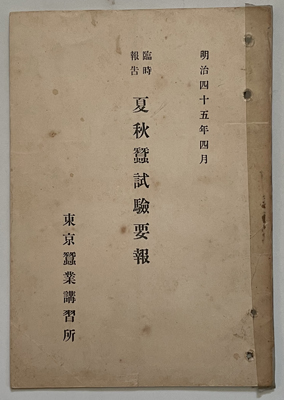 明治四十五年四月
臨時
報告
夏秋蠶試驗要報
東京蠶業講習所